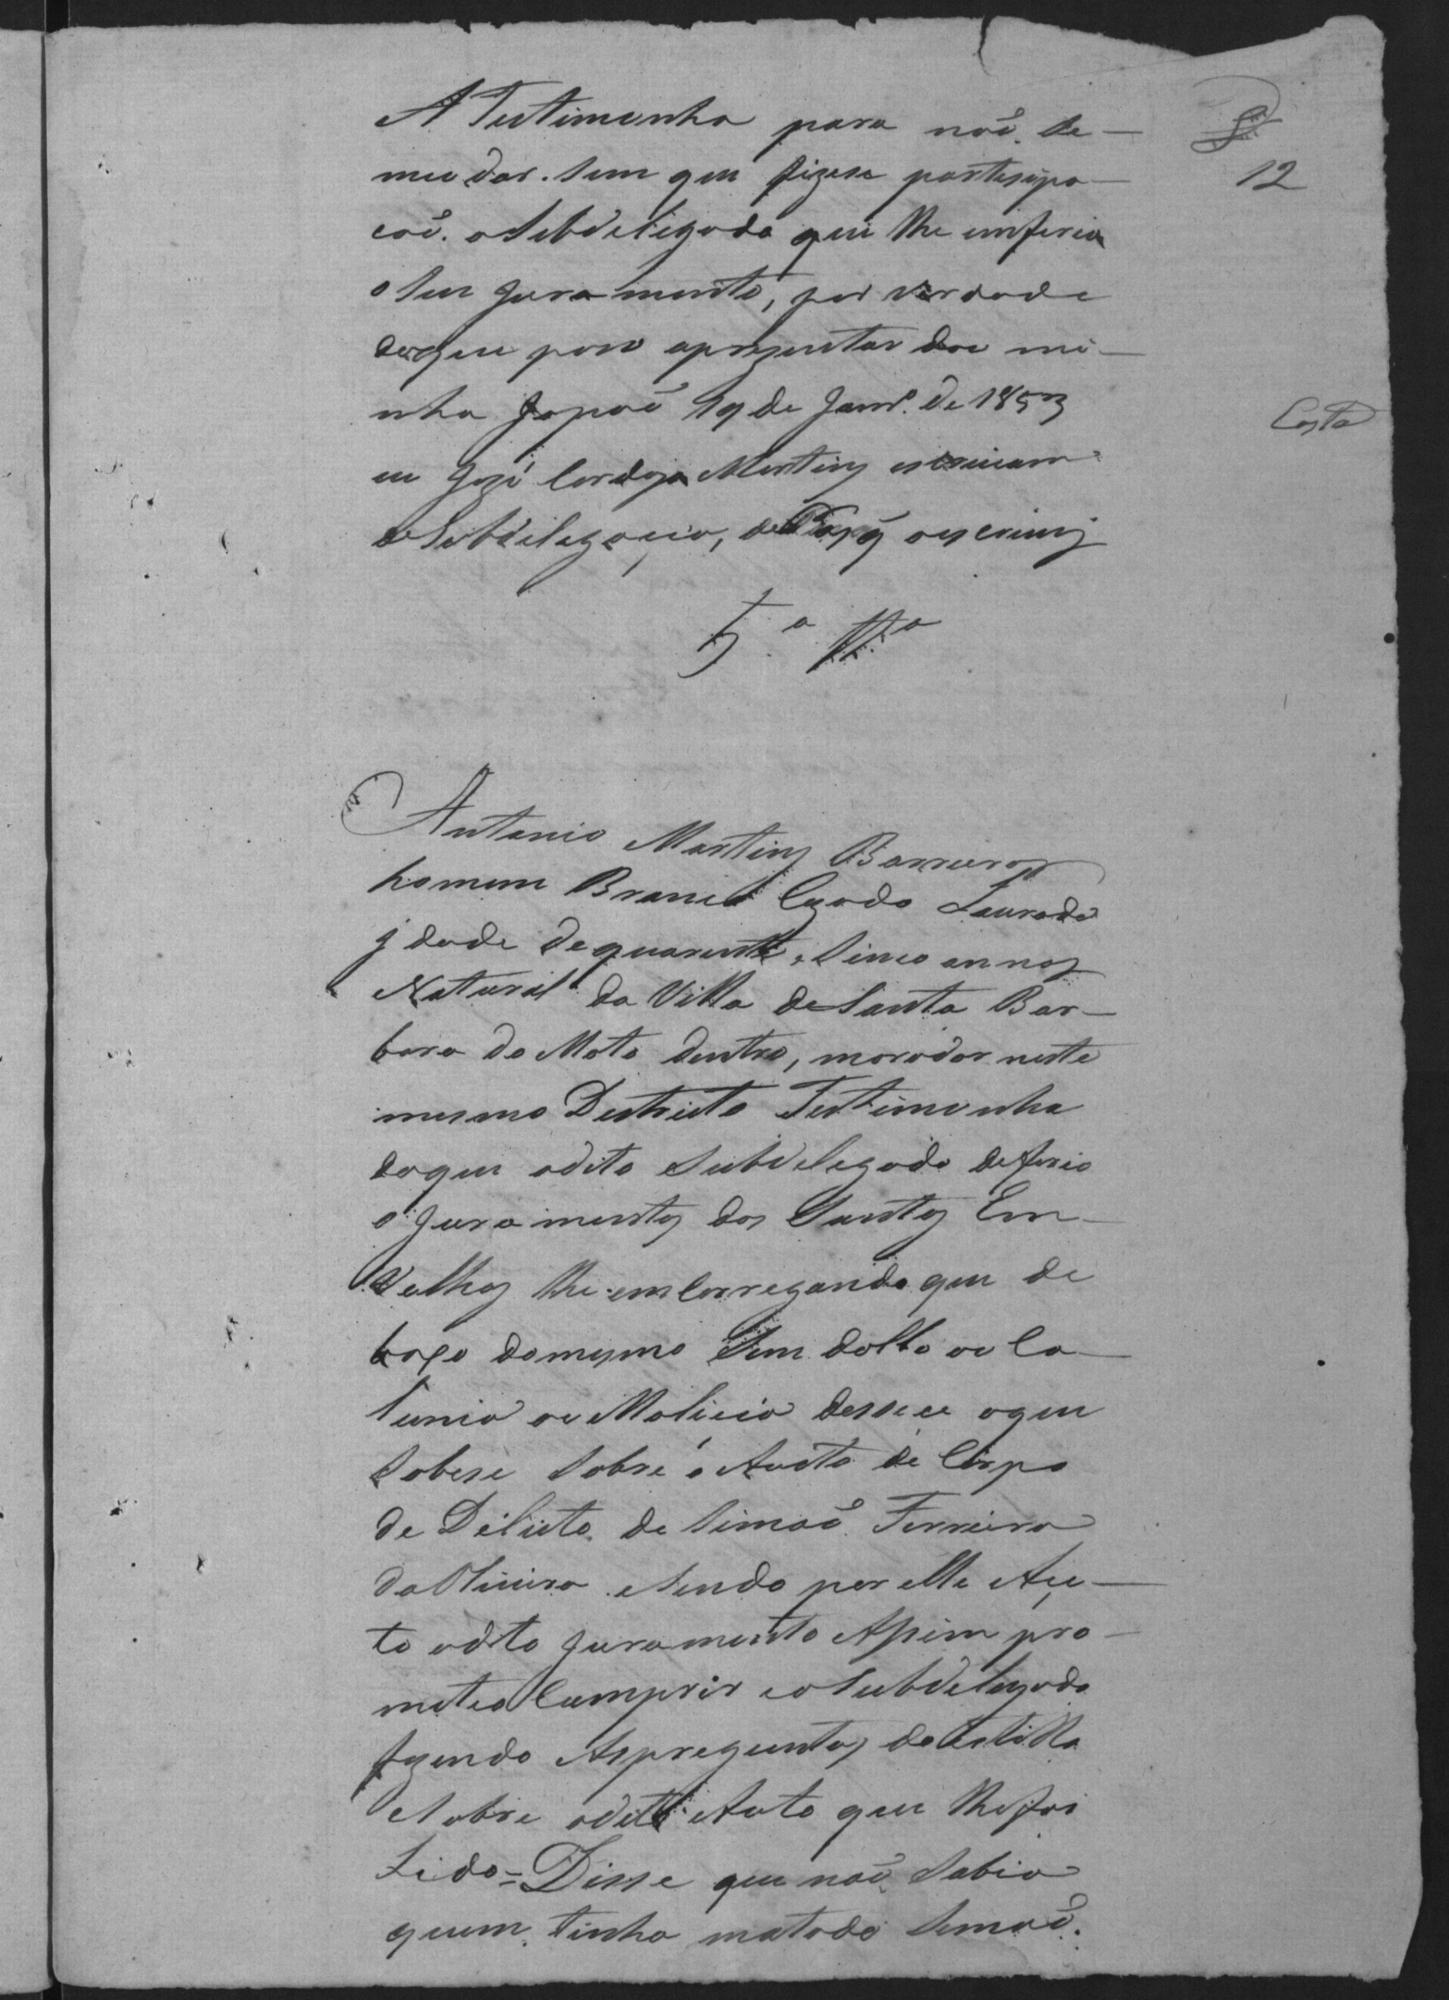 A Testimonha para naõ se
mudar. sem que fizese partesipa
caõ. o Subdeligado que lhe emferia
o seu Juramento, por verdade
doque poso aprezentar dou mi
nha Japaõ 19 de Janr.º de 1853
eu Jozé Cardozo Martins escrivam
da Subdelegacia, de Japaõ o escrivij
12
Costa
5.ª Tt.ª
Antonio Martins Barreiros
homem Branco Cazado Laurado
jdade de quarenta, e Sinco annos
Natural da Villa de Santa Bar
bara do Mato dentro, morador neste
mesmo Destricto Testimonha
doque odito Subdelegado deferio
o Juramentos dos Santos Em
Velhos lhe emCarregando que de
baxo do mesmo Sem dollo ou Ca
lunia ou Malicia dessece oque
Sobese Sobre o Auto de Corpo
de Delicto de Simaõ Ferreira
da Oliveira. e Sendo por elle Açei
to odito Juramento Asim pro
meteo Cumprir e o Subdelegado
fazendo Aspreguntas do Estillo
e Sobre odito Auto que lhe foi
Lido = Disse que naõ Sabia
quem tinha matado Simaõ.